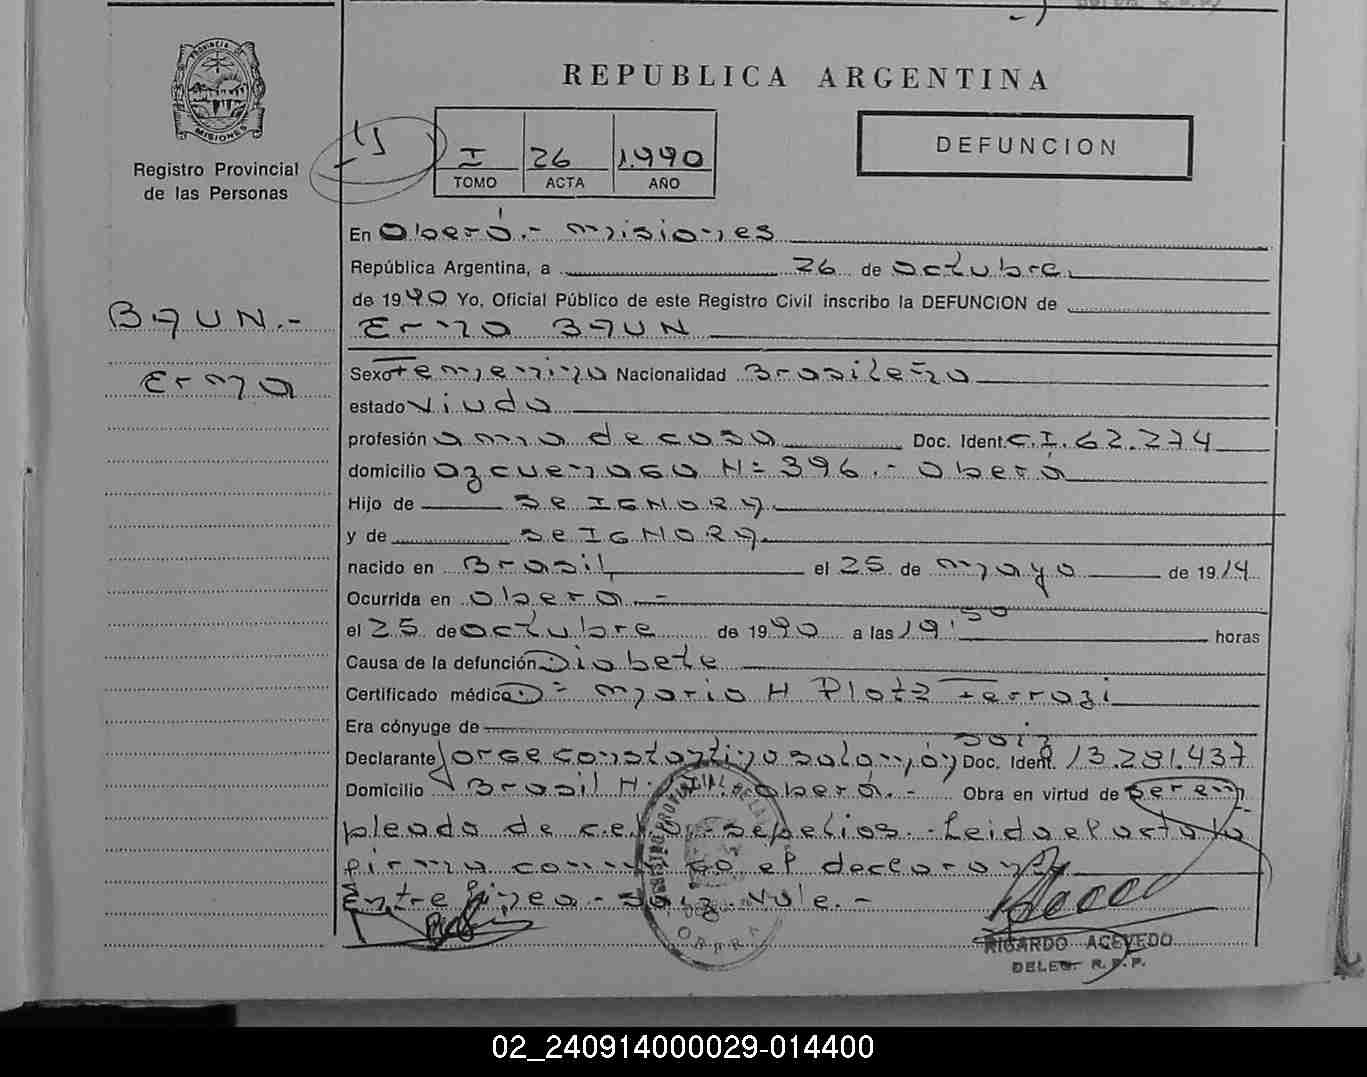 REPUBLICA ARGENTINA
PROVINCIA DE
MISIONES
Registro Provincial
de las Personas
I 26 1.990
TOMO ACTA AÑO
DEFUNCION
En Oberá.- Misiones
República Argentina, a 26 de octubre
de 1990 Yo, Oficial Público de este Registro Civil inscribo la DEFUNCION de
BAUN.-
Erma BAUN
Erma
Sexo Femenino Nacionalidad Brasileña
estado Viuda
profesión ama de casa Doc. Ident. C.I. 62.274
domicilio Azcuenaga Nº 396.- Oberá
Hijo de Se IGNORA
y de Se IGNORA
nacido en Brasil el 25 de mayo de 1914
Ocurrida en Oberá.-
el 25 de octubre de 1990 a las 19:30 horas
Causa de la defunción Diabete
Certificado médico Dº Mario H Platz Ferrazi
Era cónyuge de
Declarante Jorge Constantino Salomón Doc. Ident. 13.281.437
Domicilio Brasil Oberá.- Obra en virtud de ser em
pleado de sepelios.- Leida el acta la
firma conmigo el declarante
Entre linea - Vale.-
OBERA
RICARDO ACEVEDO
DELEG. R.P.P.
02_240914000029-014400